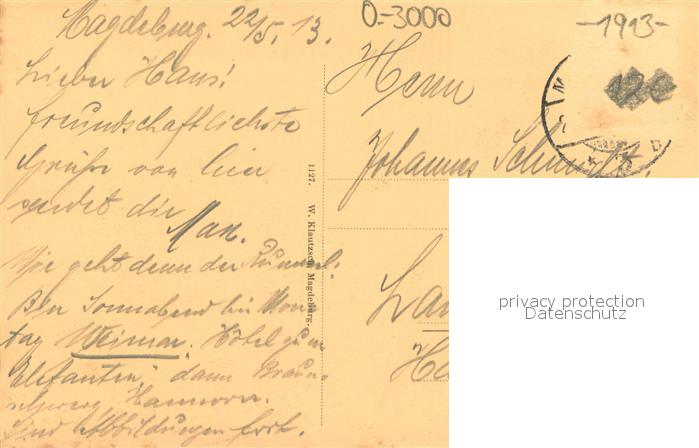 Magdeburg. 22/5. 13.
Lieber Hans!
Freundschaftlichste
Grüße von hier
sendet dir
Max.
Wie geht denn der Rummel.
Bin Sonnabend bis Mon-
tag Weimar. Hôtel zum
Elefanten," dann Braun-
schweig, Hannover.
Sind Abbildungen fort.
1127. W. Klautzsch, Magdeburg.
0.-3000
-1913-
Herrn
Johannes Schmidt.
privacy protection
Datenschutz